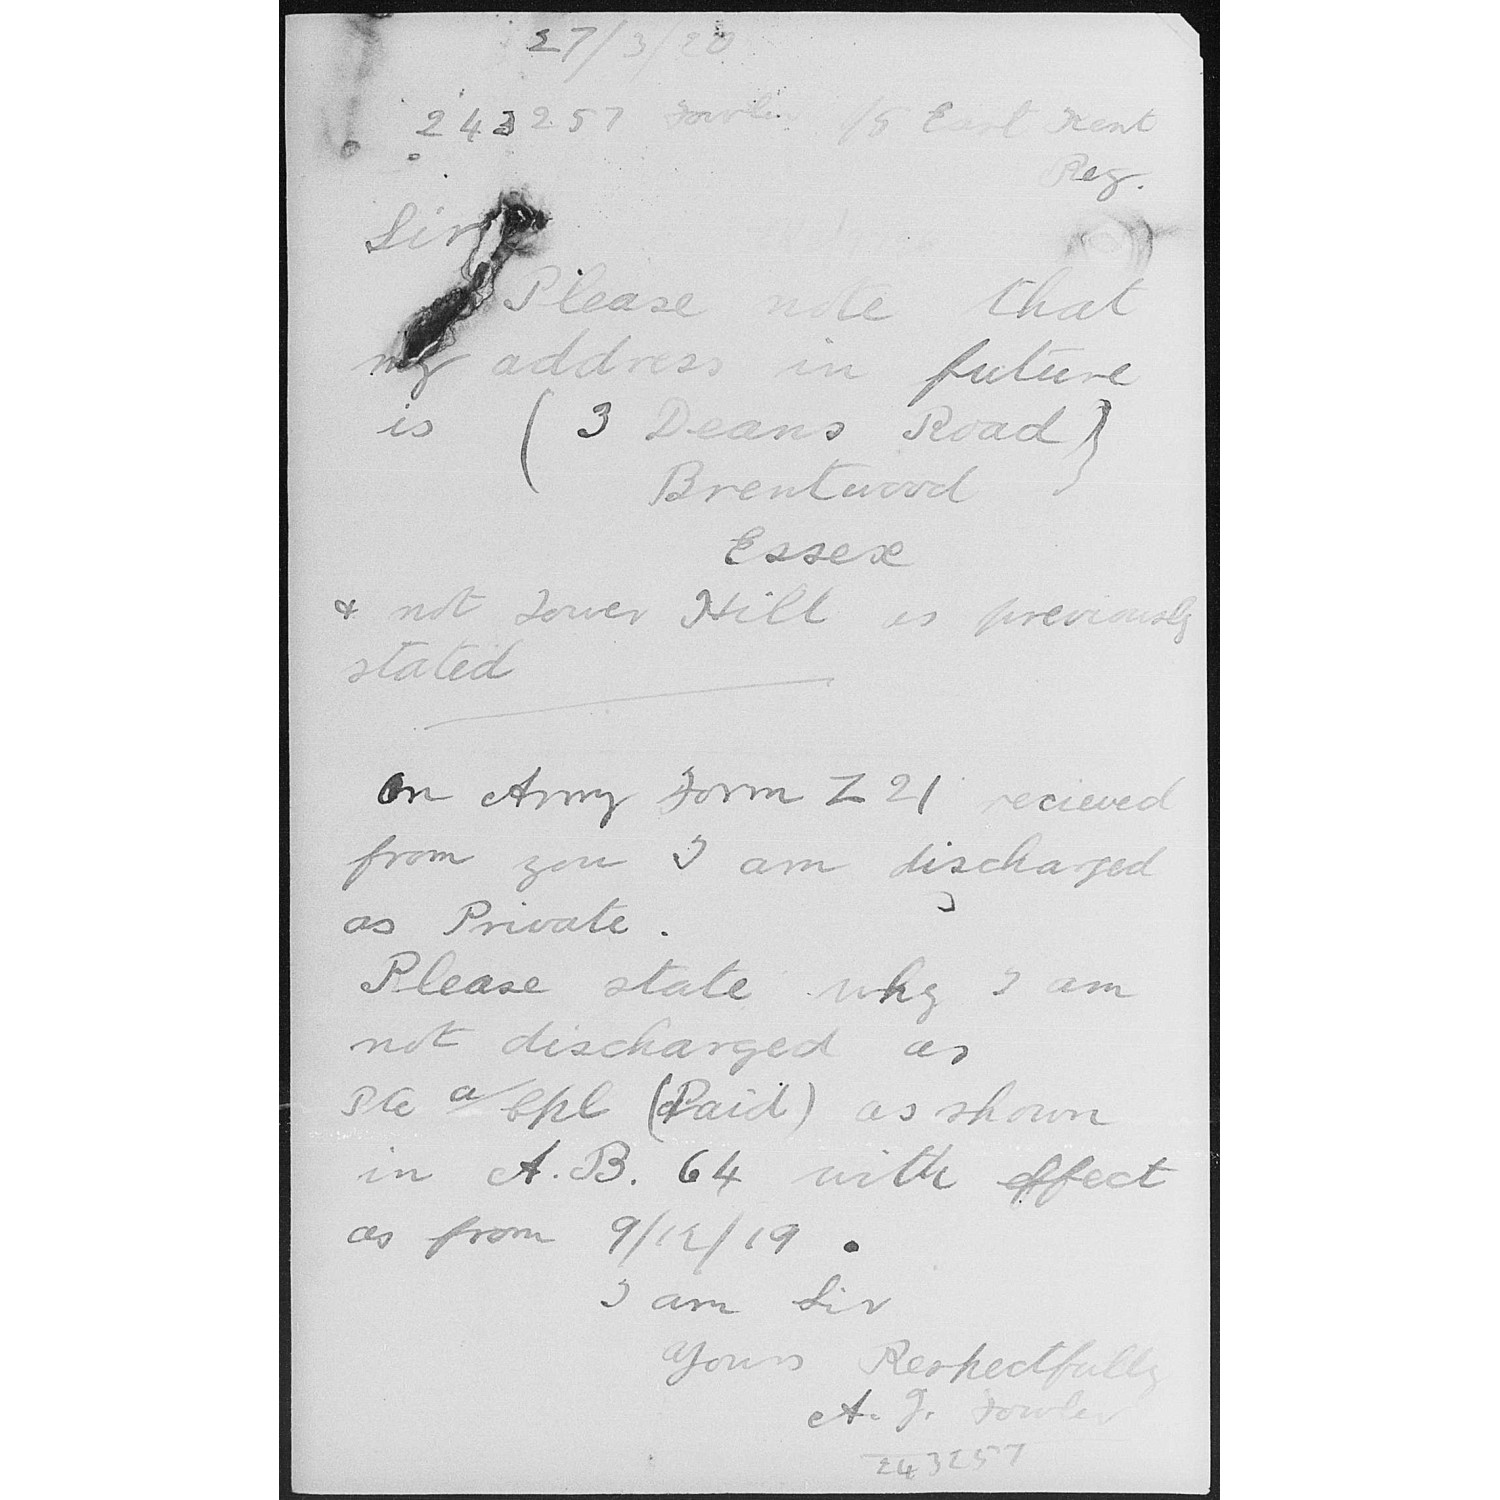 27/3/20
243257 Fowler 1/5 East Kent
Reg.
Sir
Please note that
my address in future
is (3 Deans Road)
Brentwood
Essex
& not Tower Hill as previously
stated
On Army Form Z 21 recieved
from you I am discharged
as Private.
Please state why I am
not discharged as
a/Cpl (Paid) as shown
in A.B. 64 with effect
as from 9/12/19.
I am Sir
Yours Respectfully
A. J. Fowler
243257